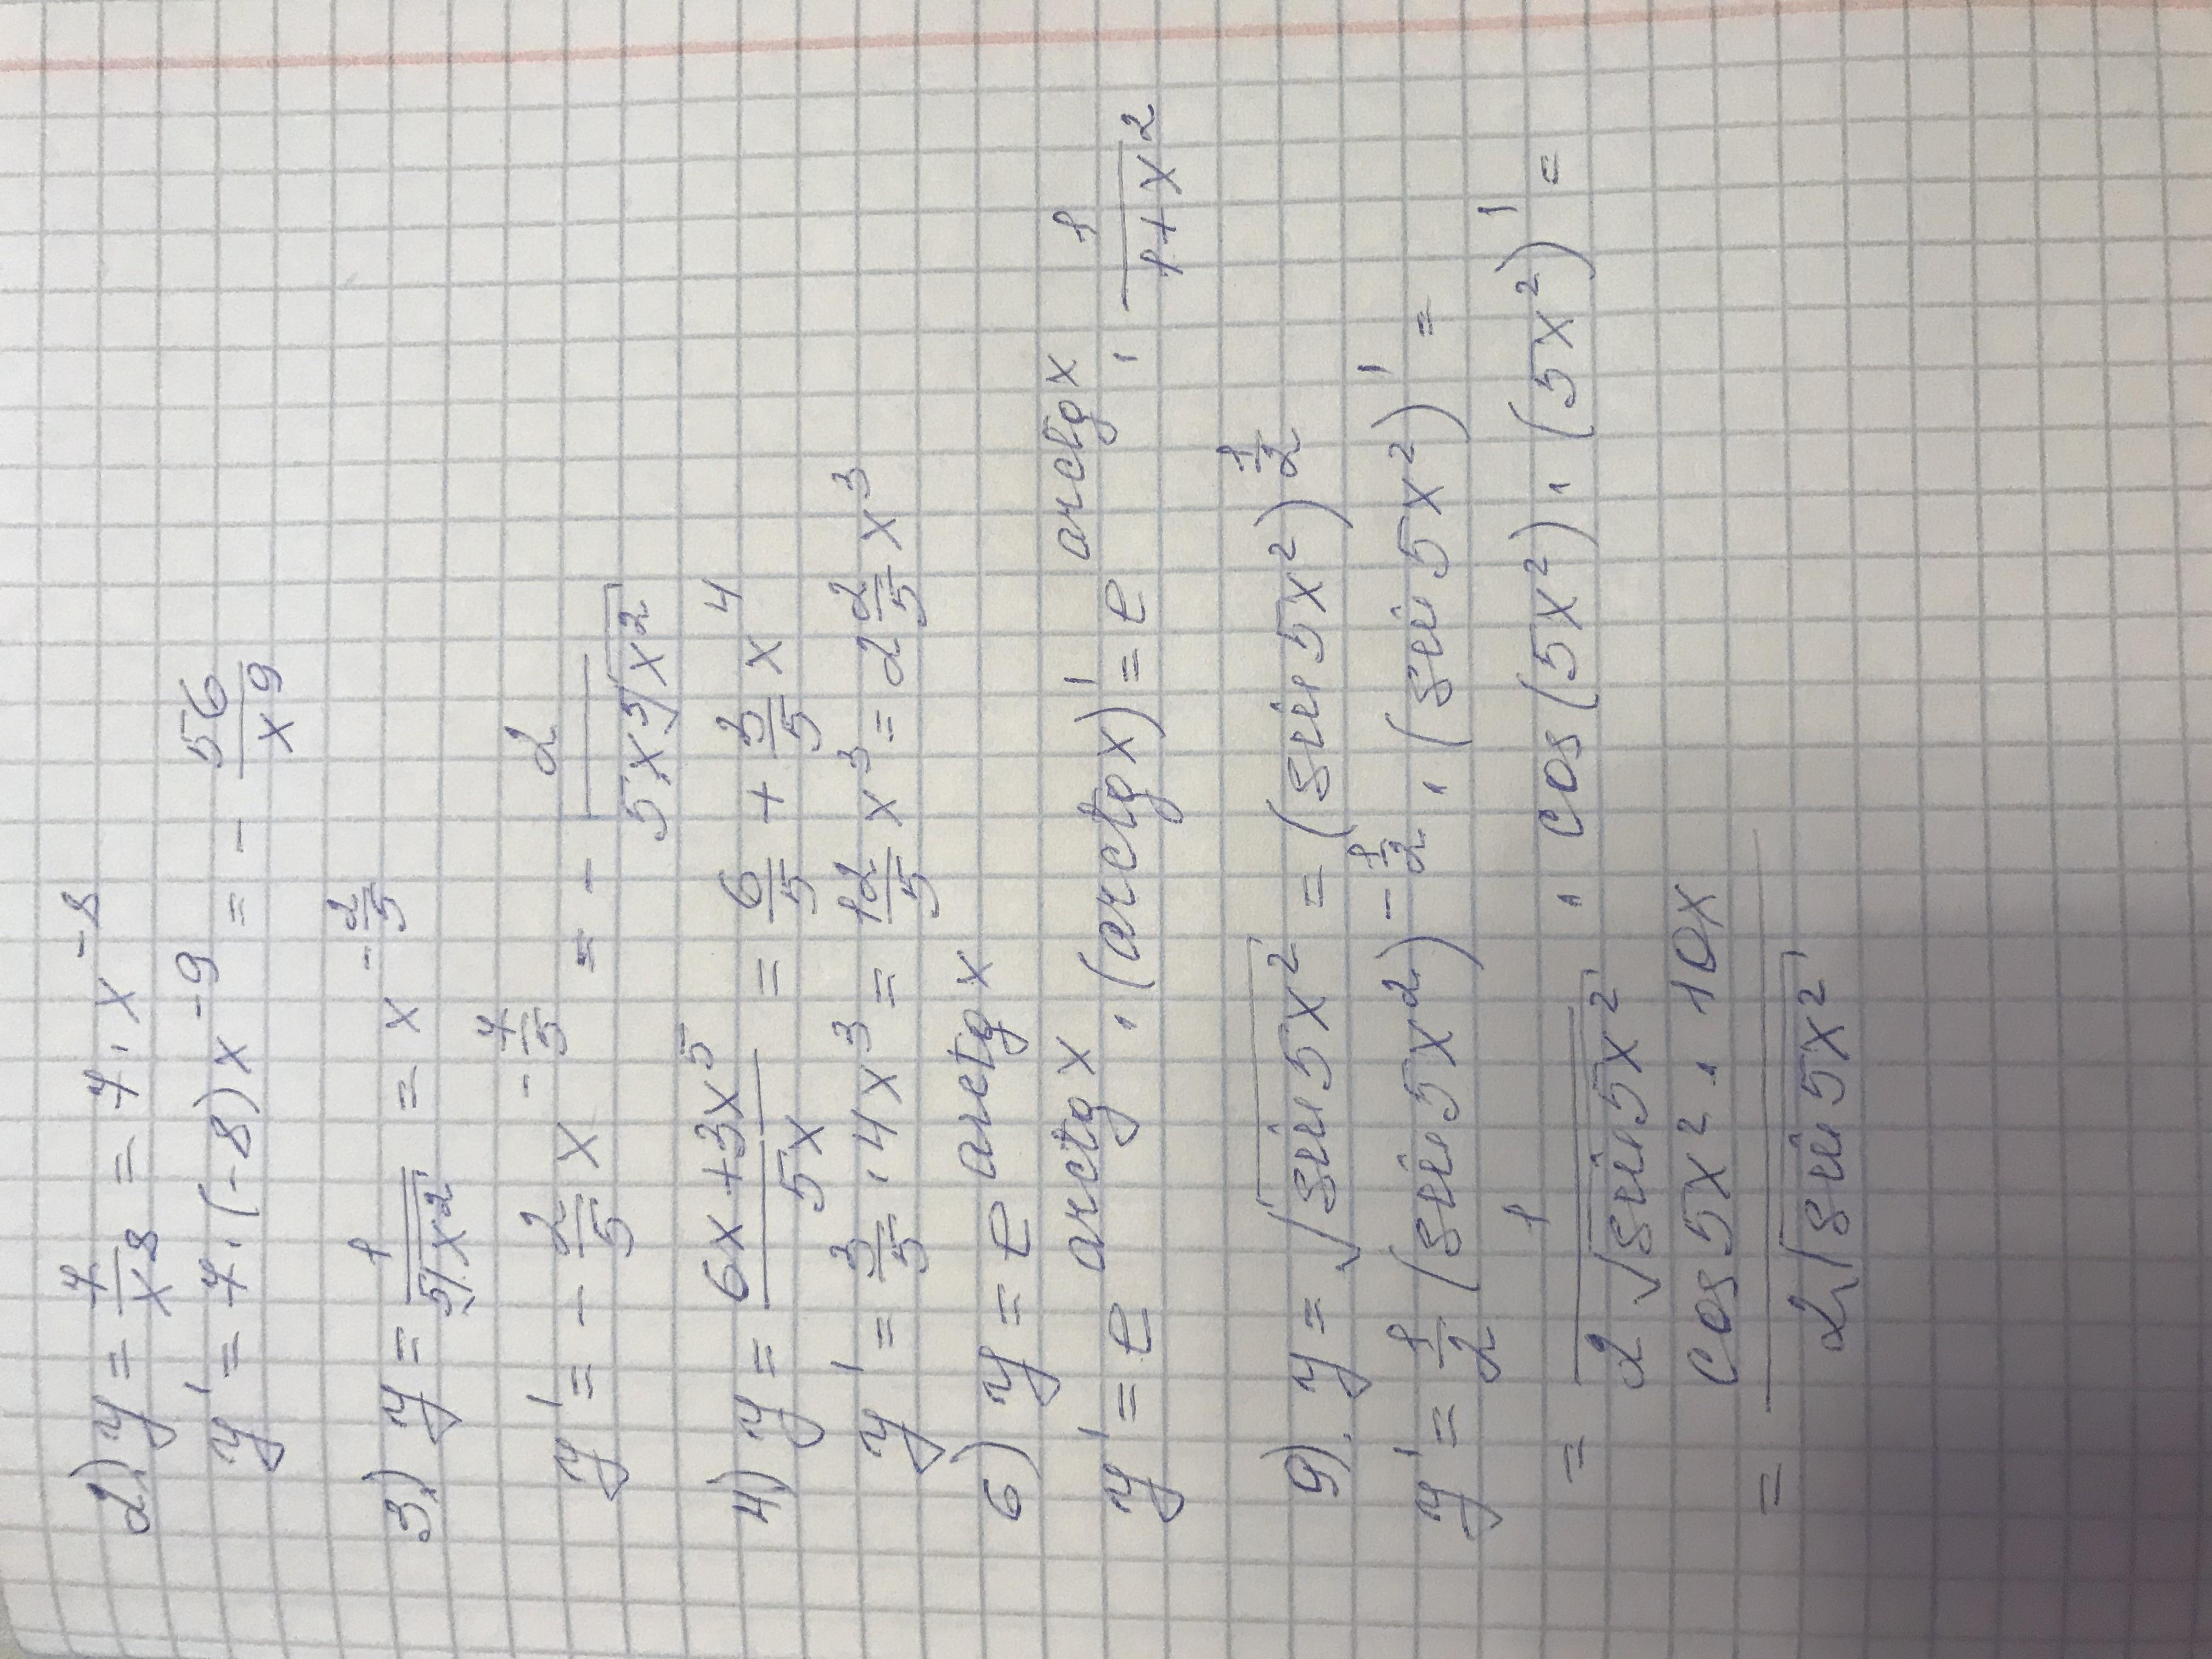 2) y = 7/x⁸ = 7 · x⁻⁸
y' = 7 · (-8)x⁻⁹ = - 56/x⁹
3) y = 1/⁵√x² = x^(-2/5)
y' = - 2/5 x^(-7/5) = - 2/(5x ⁵√x²)
4) y = (6x + 3x⁵)/5x = 6/5 + 3/5 x⁴
y' = 3/5 · 4x³ = 12/5 x³ = 2 2/5 x³
6) y = e^(arctg x)
y' = e^(arctg x) · (arctg x)' = e^(arctg x) · 1/(1+x²)
9). y = √(sin 5x²) = (sin 5x²)^(1/2)
y' = 1/2 (sin 5x²)^(-1/2) · (sin 5x²)' =
= 1/(2√(sin 5x²)) · cos(5x²) · (5x²)' =
= (cos 5x² · 10x)/(2√(sin 5x²))